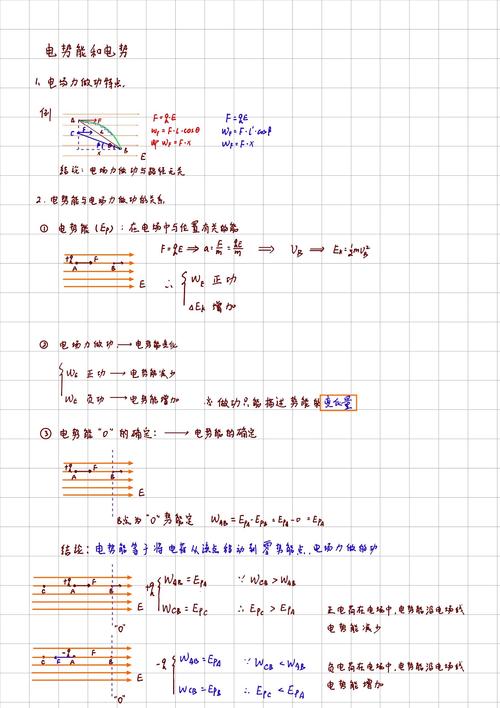 电势能和电势
1、电场力做功特点.
例
A F
C F L
B
x
E
F=q·E
W_F=F·L·cosθ
即 W_F=F·x
F=q·E
W_F=F·L'·cosβ
W_F=F·x
结论:电场力做功与路径无关
2.电势能与电场力做功的关系.
① 电势能 (Ep):在电场中与位置有关的能
+q F
A B
E
F=qE ⇒ a=F/m=qE/m ⇒ V_B ⇒ E_k=1/2mV_B²
∴ { W_E 正功
ΔE_k 增加
② 电场力做功 → 电势能变化
{ W_E 正功 → 电势能减少
W_E 负功 → 电势能增加
※做功只能描述势能的变化量
③ 电势能"0"的确定: → 电势能的确定
+q F
A B
E
B点为"0"势能点 W_AB=E_PA-E_PB=E_PA-0=E_PA
结论:电势能等于将电荷从该点移动到零势能点,电场力做的功
+q F
C A B
E
"0"
+q { W_AB=E_PA ∵ W_CB>W_AB
W_CB=E_PC ∴ E_PC>E_PA
正电荷在电场中,电势能沿电场线
电势能减少
-q F
C A B
E
"0"
-q { W_AB=E_PA ∵ W_CB<W_AB
W_CB=E_PC ∴ E_PC<E_PA
负电荷在电场中,电势能沿电场线
电势能增加